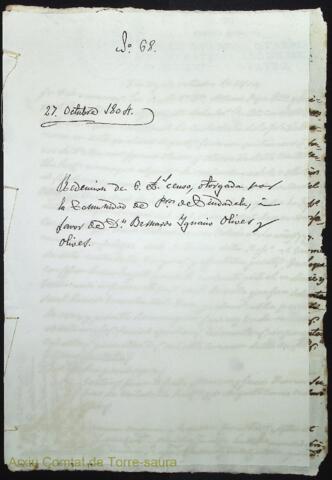 Nº. 68.
27. Octubre 1804.
Redencion de 6. Lˢ. censo, otorgada por
la Comunidad de Pros. de Ciudadela, á
favor de Dⁿ. Bernardo Ignacio Olives y
Olives.
Arxiu Comtal de Torre-saura